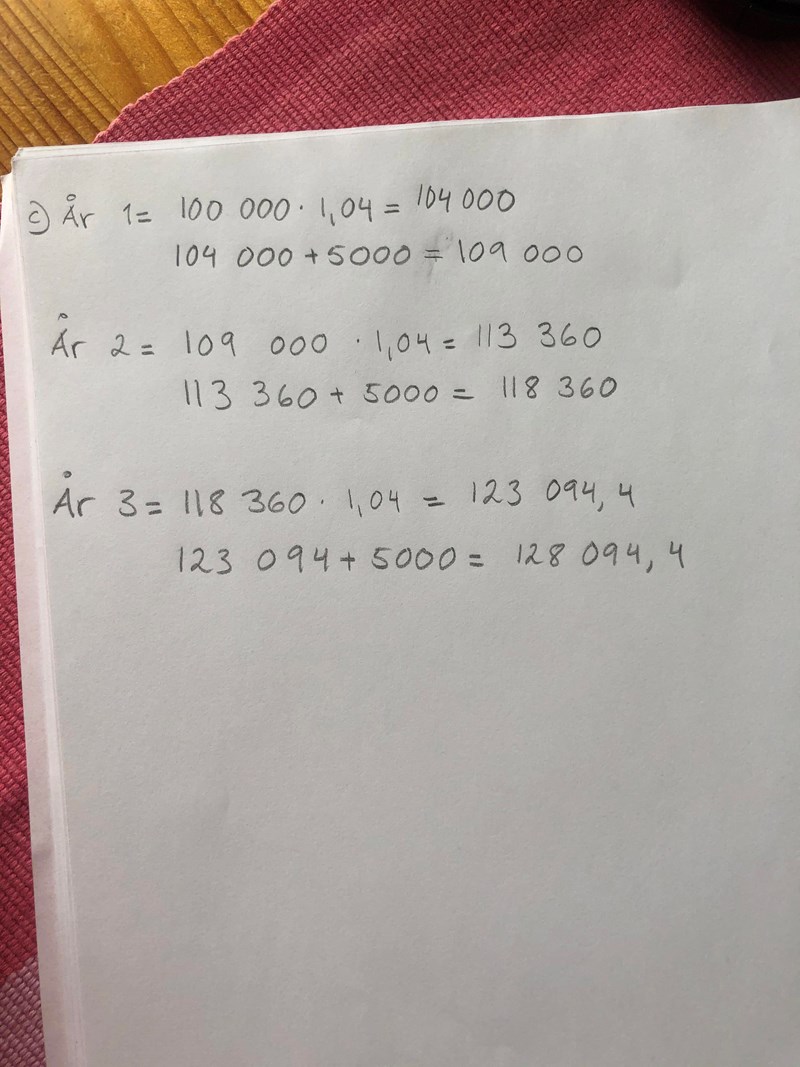 c) År 1= 100 000 · 1,04 = 104 000
104 000 + 5000 = 109 000
År 2 = 109 000 · 1,04 = 113 360
113 360 + 5000 = 118 360
År 3 = 118 360 · 1,04 = 123 094,4
123 094 + 5000 = 128 094,4